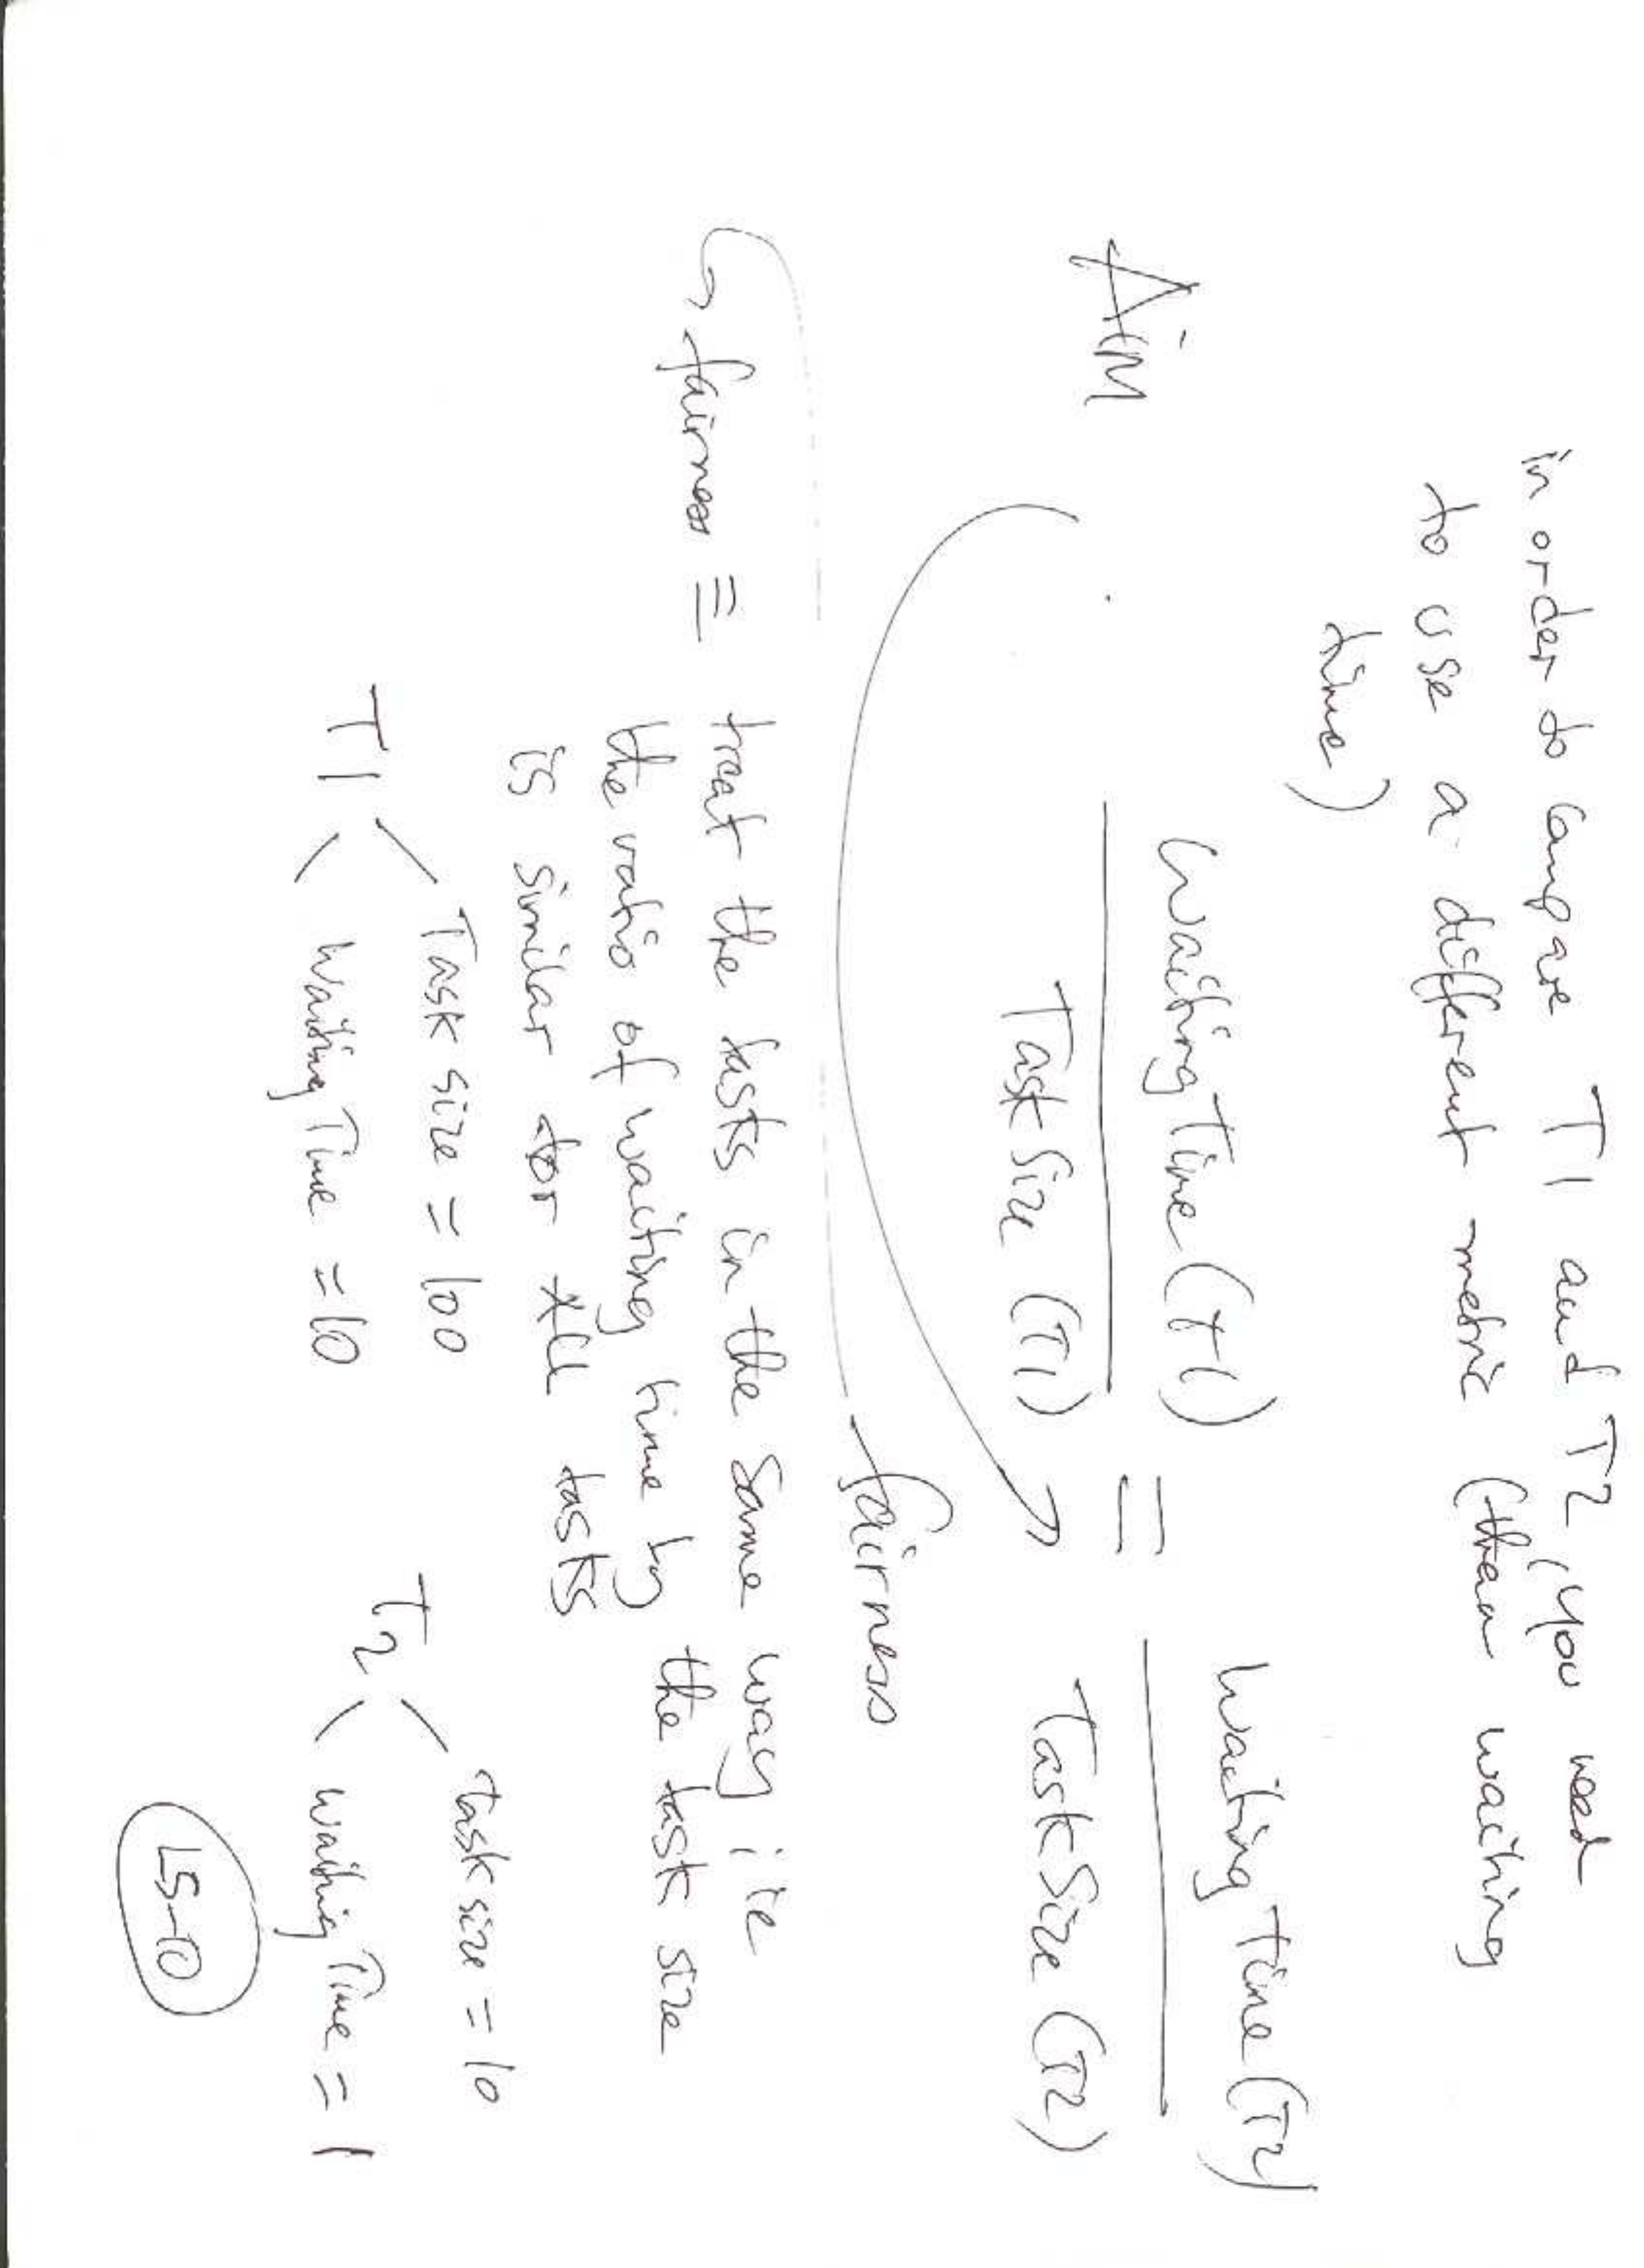 in order to compare T1 and T2, you need
to use a different metric (than waiting
time)
AIM
Waiting Time (T1) = Waiting Time (T2)
Task Size (T1) Task Size (T2)
fairness
fairness ≡ treat the tasks in the same way ie
the ratio of waiting time by the task size
is similar for all tasks
Task size = 100
T1
Waiting Time = 10
task size = 10
T2
Waiting Time = 1
L5-10